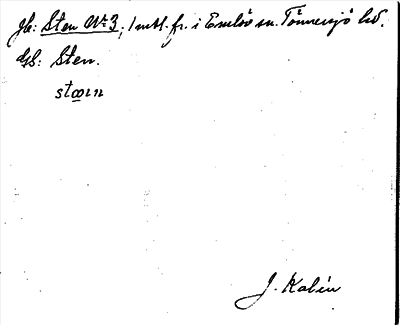 Jb: Sten No 3, 1 mtl. fr. i Eneslöv sn. Tönnersjö hd.
Gb: Sten.
stœ̄ın
J. Kalén